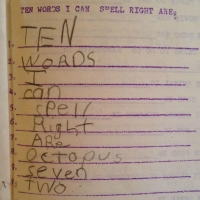 TEN WORDS I CAN SPELL RIGHT ARE:
1. TEN
2. WORDS
3. I
4. can
5. spell
6. Right
7. ARe
8. octopus
9. seven
TWO